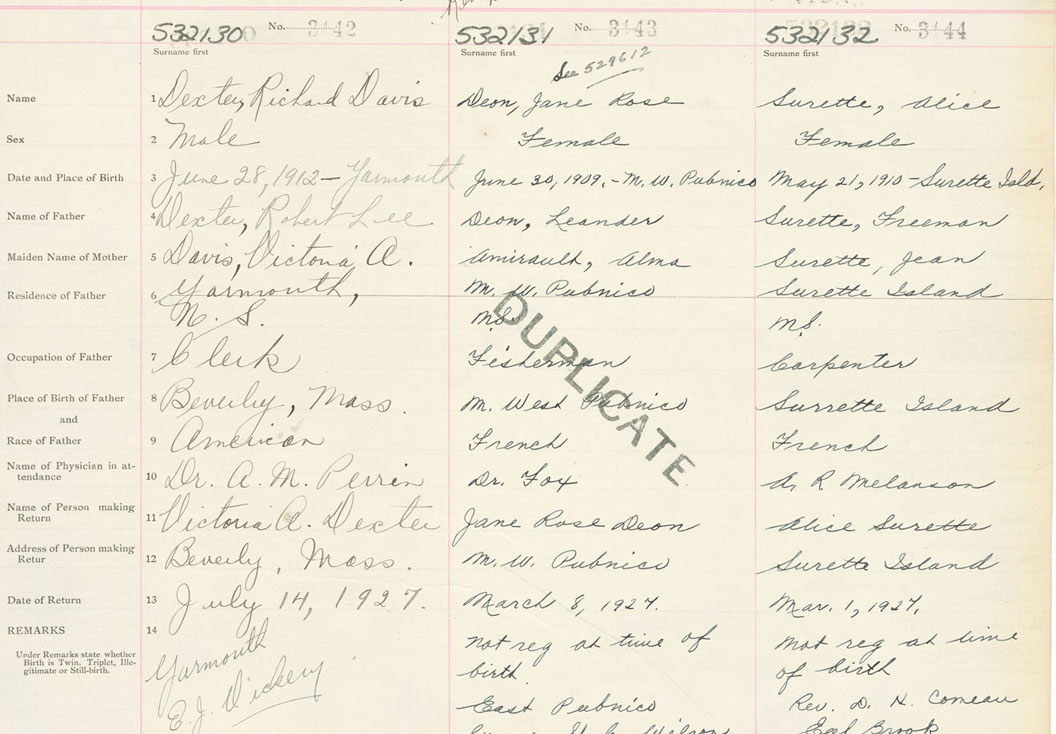 532130 No. 3142 532131 No. 3143 532132 No. 3144
Surname first Surname first Surname first
See 529612
Name 1 Dexter, Richard Davis Deon, Jane Rose Surette, Alice
Sex 2 Male Female Female
Date and Place of Birth 3 June 28, 1912 - Yarmouth June 30, 1909. - M. W. Pubnico May 21, 1910 - Surette Isld.
Name of Father 4 Dexter, Robert Lee Deon, Leander Surette, Freeman
Maiden Name of Mother 5 Davis, Victoria A. Amirault, Alma Surette, Jean
Residence of Father 6 Yarmouth, M. W. Pubnico Surette Island
N. S. NS. NS.
Occupation of Father 7 Clerk Fisherman Carpenter
DUPLICATE
Place of Birth of Father 8 Beverly, Mass. M. West Pubnico Surrette Island
and
Race of Father 9 American French French
Name of Physician in at-
tendance 10 Dr. A. M. Perrin Dr. Fox A. R Melanson
Name of Person making
Return 11 Victoria A. Dexter Jane Rose Deon Alice Surette
Address of Person making
Retur 12 Beverly, Mass. M. W. Pubnico Surette Island
Date of Return 13 July 14, 1927. March 8, 1927. Mar. 1, 1927.
REMARKS 14 Not reg at time of Not reg at time
Under Remarks state whether
Birth is Twin, Triplet, Ille-
gitimate or Still-birth.
Yarmouth birth. of birth
E. J. Vickery East Pubnico Rev. D. H. Comeau
Wilson Eel Brook